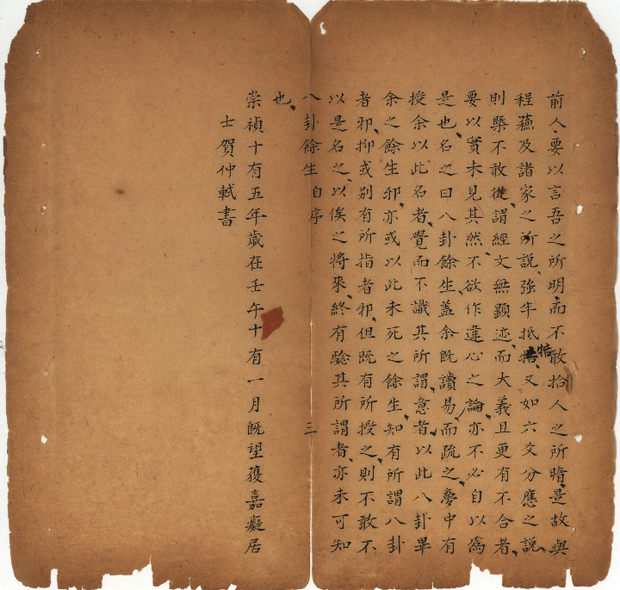 前人要以言吾之所明而不敢拾人之所暗是故與
程蘓及諸家之所說強半抵牾又如六爻分應之說
則槩不敢從謂經文無顕迹而大義且更有不合者
要以實未見其然不欲作違心之論亦不必自以為
是也名之曰八卦餘生盖余旣讀易而疏之夢中有
授余以此名者覺而不識其所謂意者以此八卦畢
余之餘生邪亦或以此未死之餘生知有所謂八卦
者邪抑或别有所指者邪但旣有所授之則不敢不
以是名之以俟之將來終有驗其所謂者亦未可知
八卦餘生 自序 三
也
崇禎十有五年歲在壬午十有一月旣望獲嘉癡居
士賀仲軾書